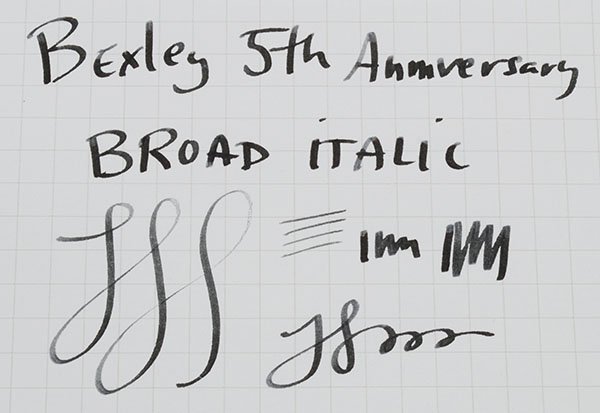 Bexley 5th Anniversary
BROAD iTALIC